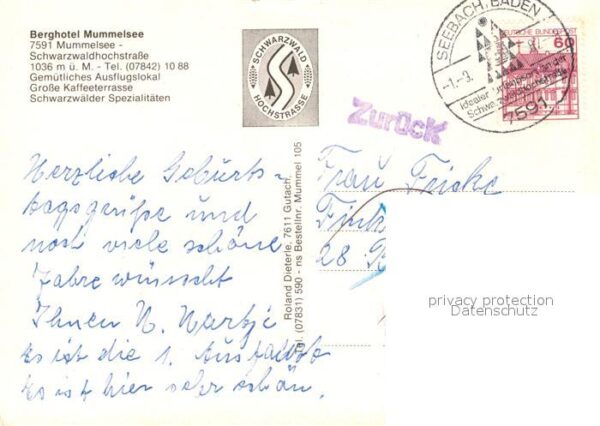 Berghotel Mummelsee
7591 Mummelsee -
Schwarzwaldhochstraße
1036 m ü. M. - Tel. (07842) 10 88
Gemütliches Ausflugslokal
Große Kaffeeterrasse
Schwarzwälder Spezialitäten
SCHWARZWALD
HOCHSTRASSE
SEEBACH, BADEN
7591
DEUTSCHE BUNDESPOST
60
Zurück
Herzliche Geburts-
tagsgrüße und
noch viele schöne
Jahre wünscht
Ihnen
Es ist die 1.
Es ist hier sehr schön.
Roland Dieterle, 7611 Gutach,
Tel. (07831) 590 - ns Bestellnr. Mummel 105
Frau Fricke
28
privacy protection
Datenschutz